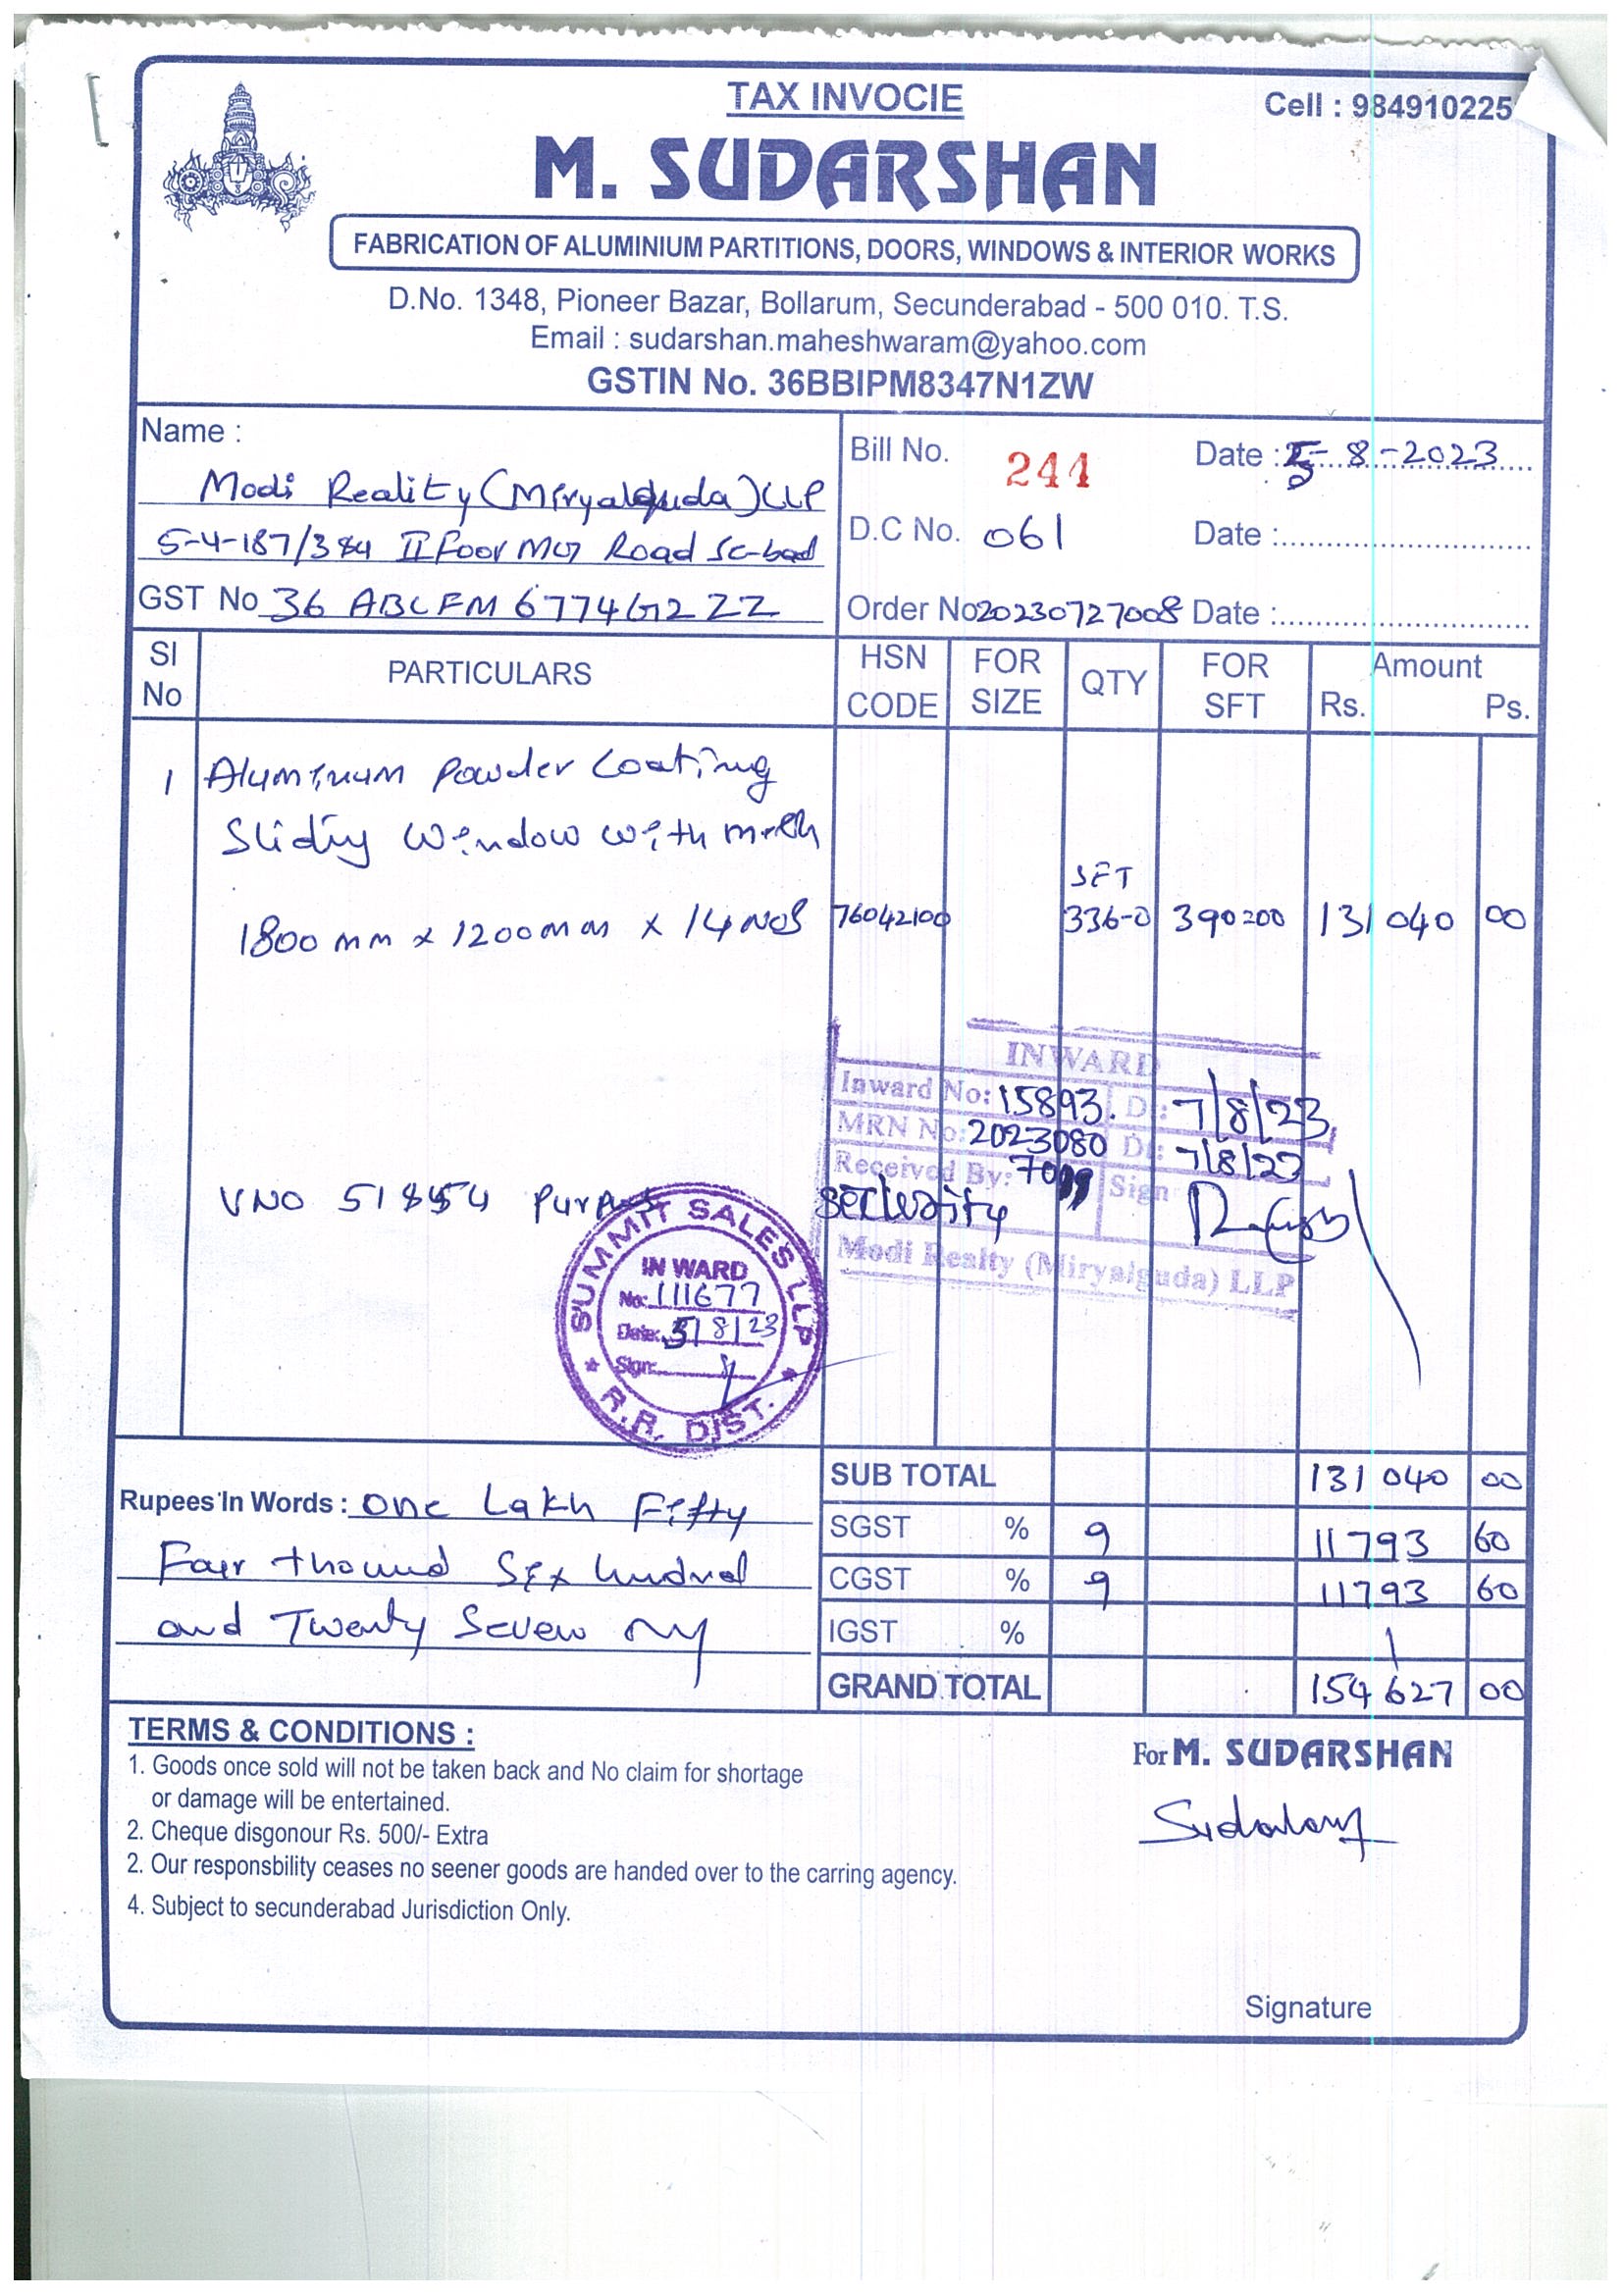 TAX INVOCIE
Cell : 984910225
M. SUDARSHAN
FABRICATION OF ALUMINIUM PARTITIONS, DOORS, WINDOWS & INTERIOR WORKS
D.No. 1348, Pioneer Bazar, Bollarum, Secunderabad - 500 010. T.S.
Email : sudarshan.maheshwaram@yahoo.com
GSTIN No. 36BBIPM8347N1ZW
Name :
Modi Reality (Miryalguda) LLP
5-4-187/3&4 II Foor MG Road Sc-bad
GST No 36 ABCFM 6774G2ZZ
Bill No. 244 Date : 5-8-2023
D.C No. 061 Date :
Order No 20230727008 Date :
SI No PARTICULARS HSN CODE FOR SIZE QTY FOR SFT Amount Rs. Ps.
1 Aluminum Powder Coating
Sliding Window with mesh
SFT
1800mm x 1200mm x 14 Nos 76042100 336-0 390=00 131040 00
INWARD
Inward No: 15893. Dt: 7/8/23
MRN No: 20230807 Dt: 7/8/23
Received By: Security Sign
Modi Realty (Miryalguda) LLP
VNO
SUMMIT SALES LLP
IN WARD
No: 111677
Date: 5/8/23
Sign:
R.R. DIST.
SUB TOTAL 131040 00
SGST % 9 11793 60
CGST % 9 11793 60
IGST %
GRAND TOTAL 154627 00
Rupees In Words : One Lakh Fifty
Four thound Six hundred
and Twenty Seven only
TERMS & CONDITIONS :
1. Goods once sold will not be taken back and No claim for shortage
or damage will be entertained.
2. Cheque disgonour Rs. 500/- Extra
2. Our responsbility ceases no seener goods are handed over to the carring agency.
4. Subject to secunderabad Jurisdiction Only.
For M. SUDARSHAN
Signature